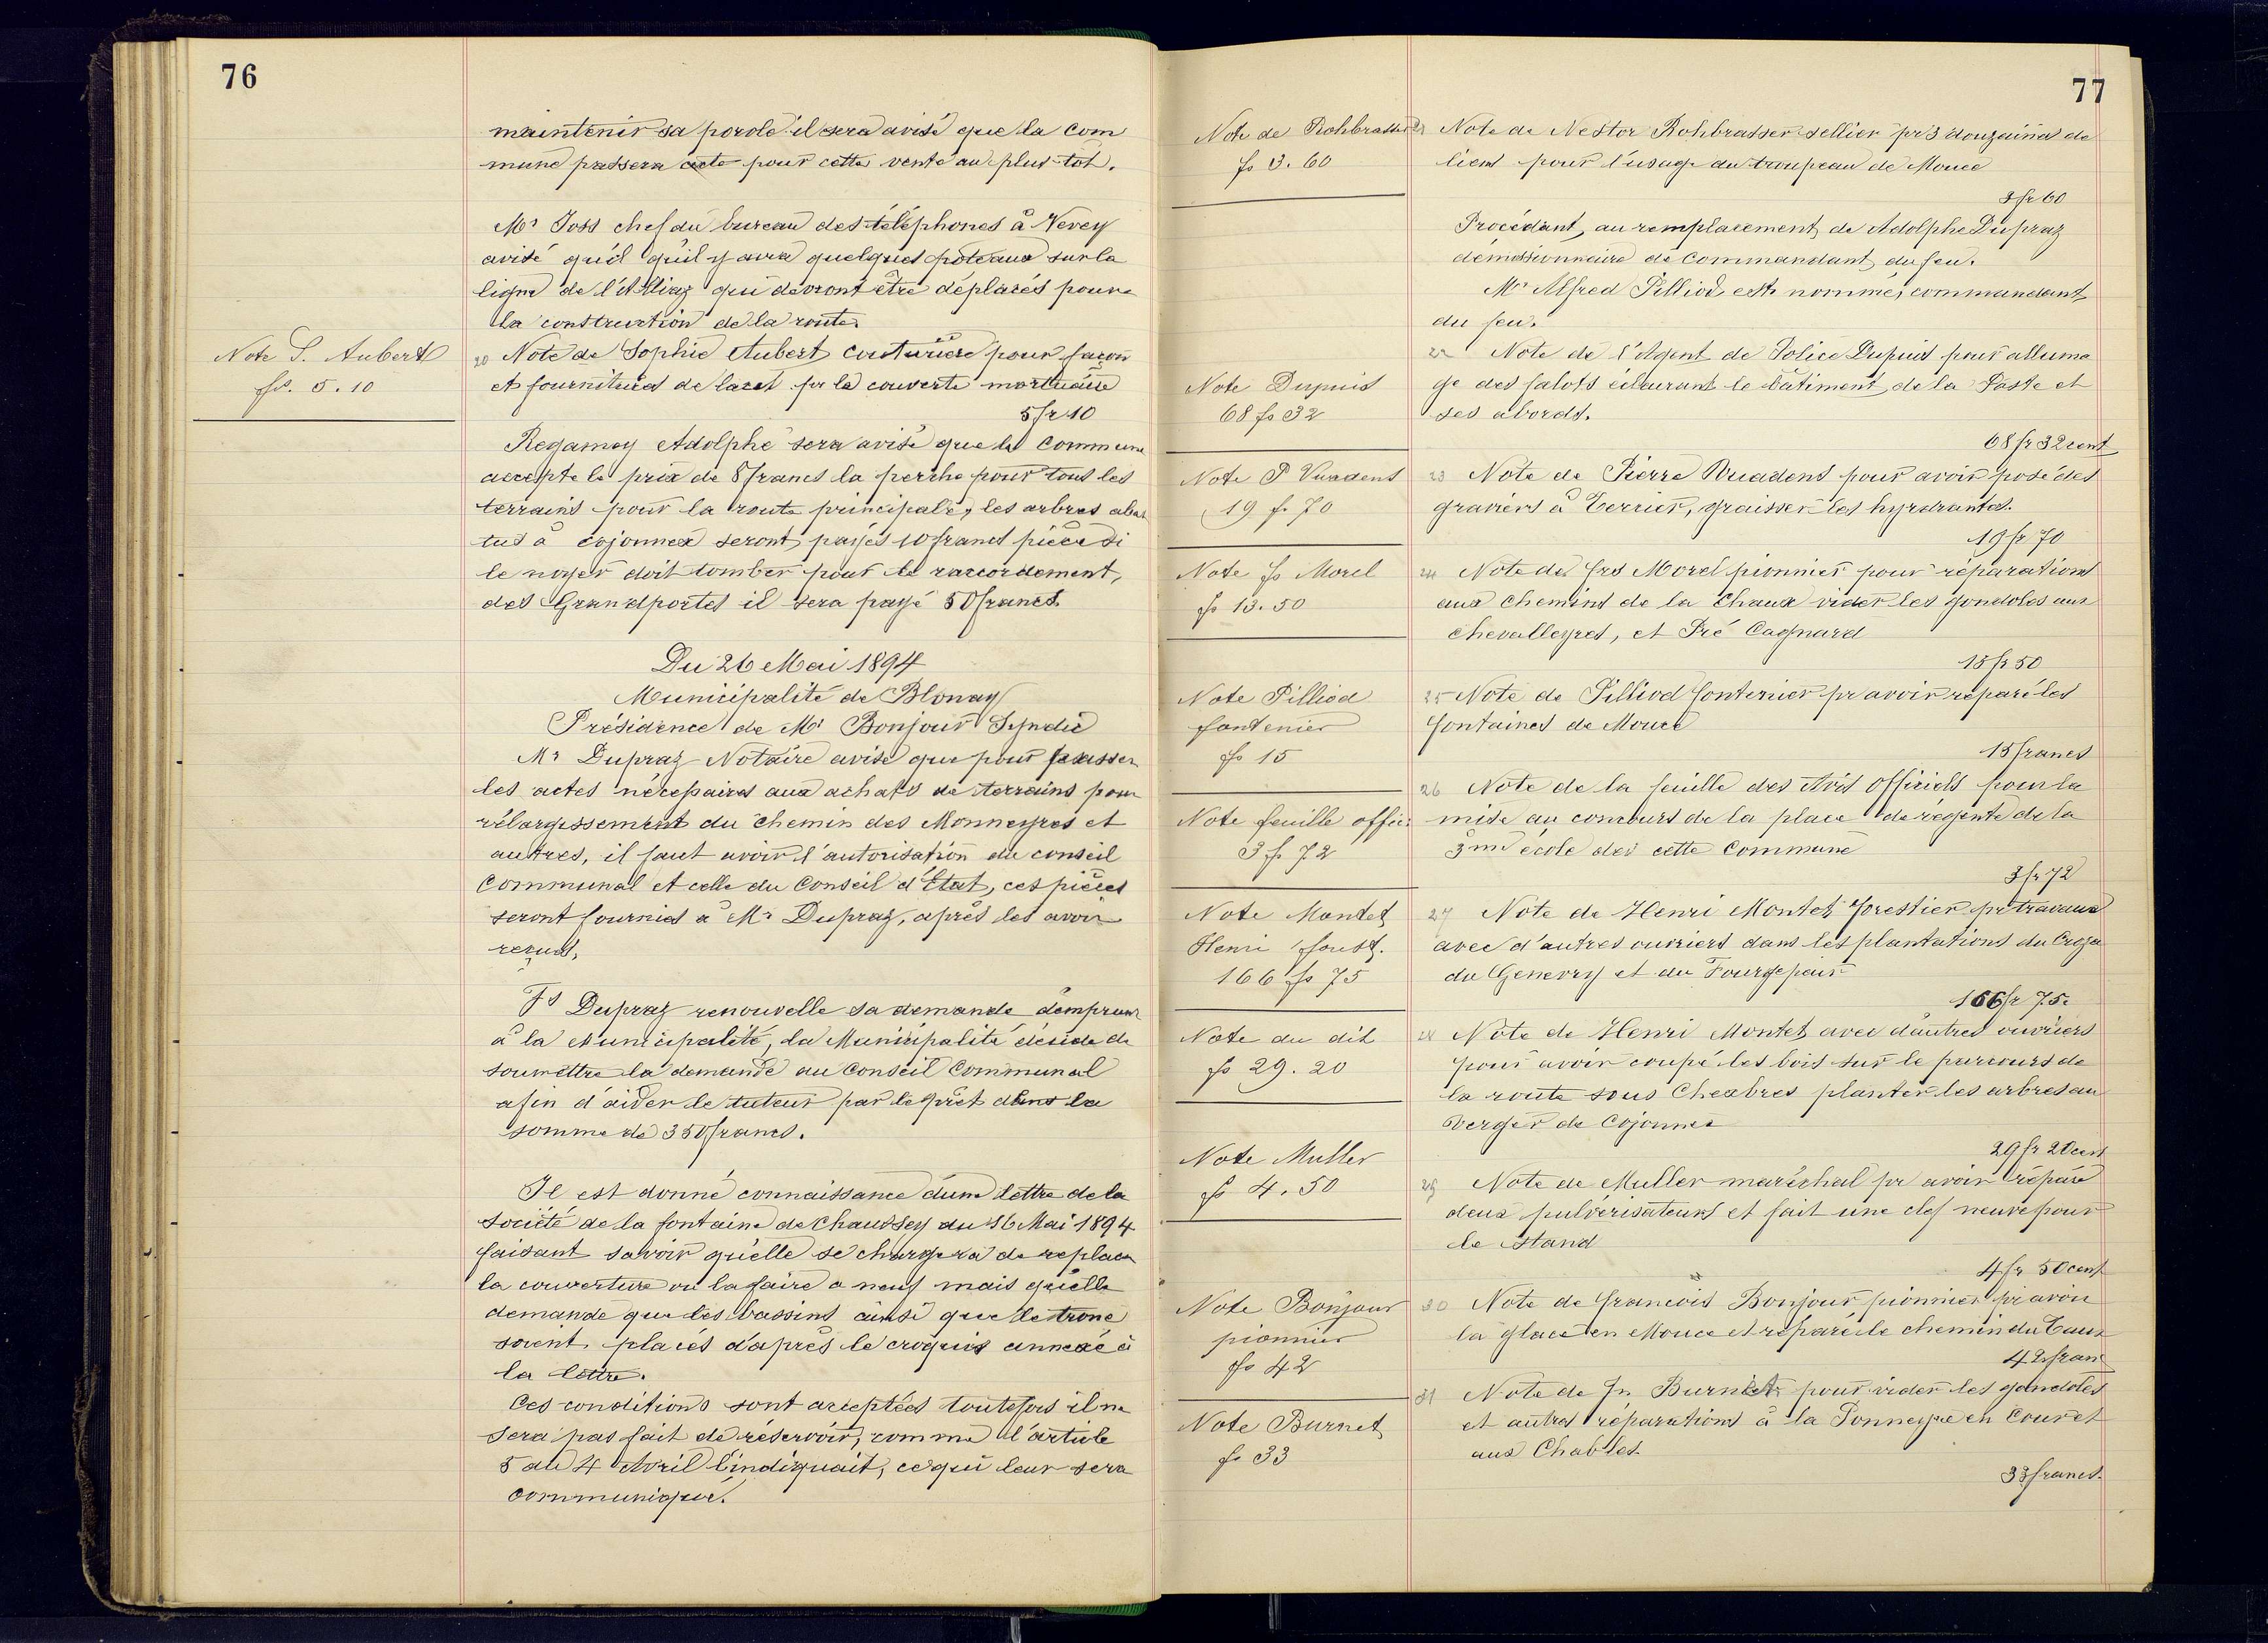 76
maintenir sa parole il sera avisé que la com
mune passera acte pour cette vente au plus tôt.
Mr Joss chef du bureau des téléphones à Vevey
avise qu'il qu'il y aura quelques poteaux sur la
ligne de l'Alliaz qui devront être déplacés pour
la construction de la route.
Note S. Aubert
fs. 5.10
20 Note de Sophie Aubert couturière pour façon
et fournitures de lacet pr la couverte mortuaire
5 fr 10
Regamey Adolphe sera avisé que la commune
accepte le prix de 8 francs la perche pour tous les
terrains pour la route principale, les arbres abat
tus à Cojonnex seront payés 10 francs pièce si
le noyer doit tomber pour le raccordement,
des Grandportes il sera payé 50 francs.
Du 26 Mai 1894
Municipalité de Blonay
Présidence de Mr Bonjour Syndic
Mr Dupraz Notaire avise que pour passer
les actes nécessaires aux achats de terrains pour
l'élargissement du chemin des Monneyres et
autres, il faut avoir l'autorisation du conseil
communal et celle du Conseil d'Etat, ces pièces
seront fournies à Mr Dupraz, après les avoir
reçues,
Fs Dupraz renouvelle sa demande d'emprunt
à la Municipalité, la Municipalité décide de
soumettre la demande au Conseil Communal
afin d'aider le tuteur par le prêt dans la
somme de 350 francs.
Il est donné connaissance d'une lettre de la
société de la fontaine de Chaussey du 16 Mai 1894
faisant savoir qu'elle se chargera de replacer
la couverture ou la faire a neuf mais qu'elle
demande que les bassins ainsi que le tronc
soient placés d'après le croquis annexé à
la lettre.
Ces conditions sont acceptées toutefois il ne
sera pas fait de réservoir, comme l'article
5 du 4 Avril l'indiquait, ce qui leur sera
communiqué.
77
Note de Rohbrasser
fs 3.60
21 Note de Nestor Rohbrasser sellier pr 3 douzaines de
liens pour l'usage du troupeau de Mouce
3 fr 60
Procédant, au remplacement de Adolphe Dupraz
démissionnaire de commandant du feu.
Mr Alfred Pilliod est nommé, commandant
du feu.
Note Dupuis
68 fs 32
22 Note de l'Agent de Police Dupuis pour alluma
ge des falots éclairant le bâtiment de la Poste et
ses abords.
68 fr 32 cent
Note P Vuadens
19 f. 70
23 Note de Pierre Vuadens pour avoir posé des
graviers à Terrier, graisser les hydrantes.
19 fr 70
Note fs Morel
fs 13.50
24 Note de frs Morel pionnier pour réparations
aux chemins de la Chaux vider les gondoles aux
chevalleyres, et Pré Cagnard
13 fr 50
Note Pilliod
fontenier
fs 15
25 Note de Pilliod fontenier pr avoir réparé les
fontaines de Mouce
15 francs
Note feuille offic:
3 f. 72
26 Note de la feuille des Avis Officiels pour la
mise au concours de la place de régente de la
3me école de cette Commune
3 fr 72
Note Montet
Henri forest.
166 fs 75
27 Note de Henri Montet forestier pr travaux
avec d'autres ouvriers dans les plantations du
du Genevry et du
166 fr 75c
Note du dit
fs 29.20
28 Note de Henri Montet avec d'autres ouvriers
pour avoir coupé les bois sur le parcours de
la route sous Chexbres planter les arbres au
verger de Cojonnex
29 fr 20 cent
Note Muller
fs 4.50
29 Note de Muller maréchal pr avoir réparé
deux pulvérisateurs et fait une clef neuve pour
le Stand
4 fr 50 cent
Note Bonjour
pionnier
fs 42
30 Note de francois Bonjour pionnier pr avoir
la glace en Mouce et réparé le chemin du
42 fran
Note Burnet
fs 33
31 Note de Burnet pour vider les gondoles
et autres réparations à la Ponneyre en Cour et
aux Chables
33 francs.